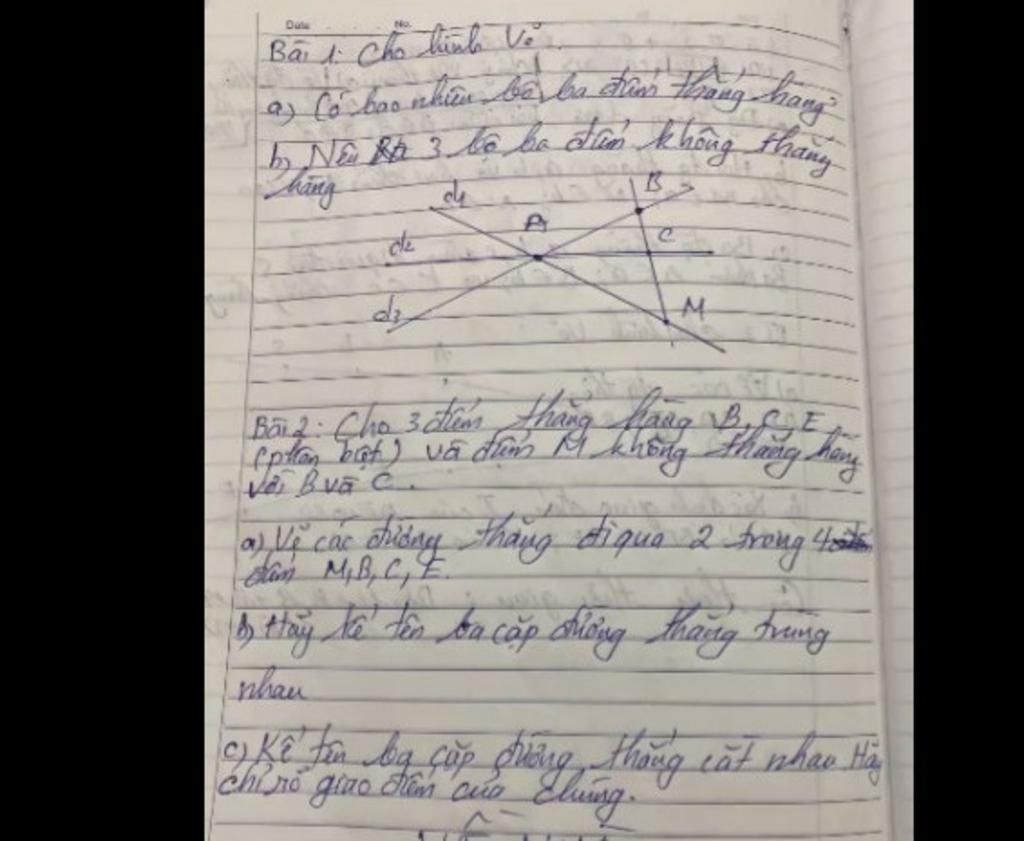 Date No.
Bài 1: Cho hình vẽ.
a) Có bao nhiêu bộ ba điểm thẳng hàng
b) Nêu 3 bộ ba điểm không thẳng
hàng
d1 B
A
d2 C
d3 M
Bài 2: Cho 3 điểm thẳng hàng B, C, E
(phân biệt) và điểm M không thẳng hàng
với B và C.
a) Vẽ các đường thẳng đi qua 2 trong 4
điểm M, B, C, E.
b) Hãy kể tên ba cặp đường thẳng trùng
nhau
c) Kể tên ba cặp đường thẳng cắt nhau Hãy
chỉ rõ giao điểm của chúng.